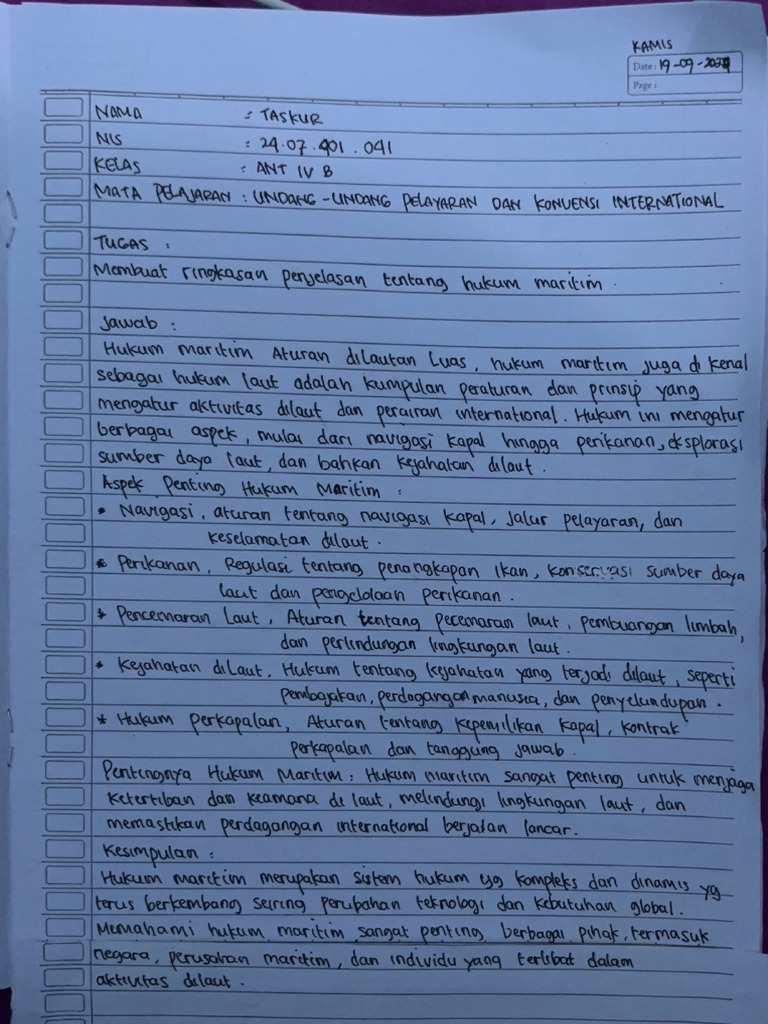 KAMIS
Date: 19-09-2024
Page:
NAMA : TASKUR
NIS : 24.07.401.041
KELAS : ANT IV B
MATA PELAJARAN : UNDANG-UNDANG PELAYARAN DAN KONVENSI INTERNATIONAL
TUGAS :
Membuat ringkasan penjelasan tentang hukum maritim.
Jawab :
Hukum maritim Aturan dilautan Luas, hukum maritim juga di kenal
sebagai hukum laut adalah kumpulan peraturan dan prinsip yang
mengatur aktivitas dilaut dan perairan international. Hukum ini mengatur
berbagai aspek, mulai dari navigasi kapal hingga perikanan, eksplorasi
sumber daya laut, dan bahkan kejahatan dilaut.
Aspek Penting Hukum Maritim :
• Navigasi, aturan tentang navigasi kapal, jalur pelayaran, dan
keselamatan dilaut.
* Perikanan, Regulasi tentang penangkapan ikan, konservasi sumber daya
laut dan pengelolaan perikanan.
* Pencemaran Laut, Aturan tentang pecemaran laut, pembuangan limbah,
dan perlindungan lingkungan laut.
* Kejahatan diLaut, Hukum tentang kejahatan yang terjadi dilaut, seperti
pembajakan, perdagangan manusia, dan penyelundupan.
* Hukum perkapalan, Aturan tentang kepemilikan kapal, kontrak
perkapalan dan tanggung jawab.
Pentingnya Hukum Maritim : Hukum maritim sangat penting untuk menjaga
ketertiban dan keamana di laut, melindungi lingkungan laut, dan
memastikan perdagangan international berjalan lancar.
Kesimpulan :
Hukum maritim merupakan sistem hukum yg kompleks dan dinamis yg
terus berkembang seiring perubahan teknologi dan kebutuhan global.
Memahami hukum maritim sangat penting berbagai pihak, termasuk
negara, perusahan maritim, dan individu yang terlibat dalam
aktivitas dilaut.